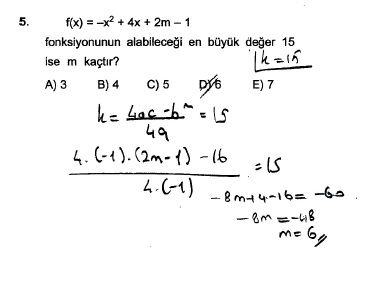 5. f(x) = –x² + 4x + 2m – 1
fonksiyonunun alabileceği en büyük değer 15
ise m kaçtır?
k = 15
A) 3 B) 4 C) 5 D) 6 E) 7
k = 4ac - b² / 4a = 15
4.(-1).(2m-1) - 16 / 4.(-1) = 15
-8m+4-16 = -60
-8m = -48
m = 6